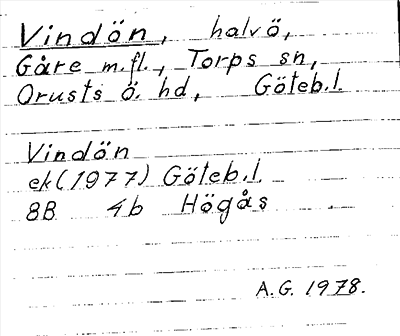 Vindön, halvö,
Gåre m.fl., Torps sn,
Orusts ö. hd, Göteb.l.
Vindön
ek (1977) Göteb.l.
8B 4b Högås
A.G. 1978.